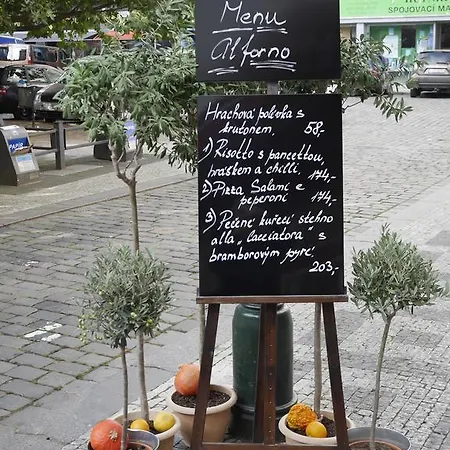 Menu
Al forno
Hrachová polévka s
krutonem, 58,-
1) Risotto s pancettou,
hráškem a chilli, 174,-
2) Pizza Salami e
peperoni 174,-
3) Pečené kuřecí stehno
alla „Cacciatora" s
bramborovým pyré,
203,-
SPOJOVACÍ MA